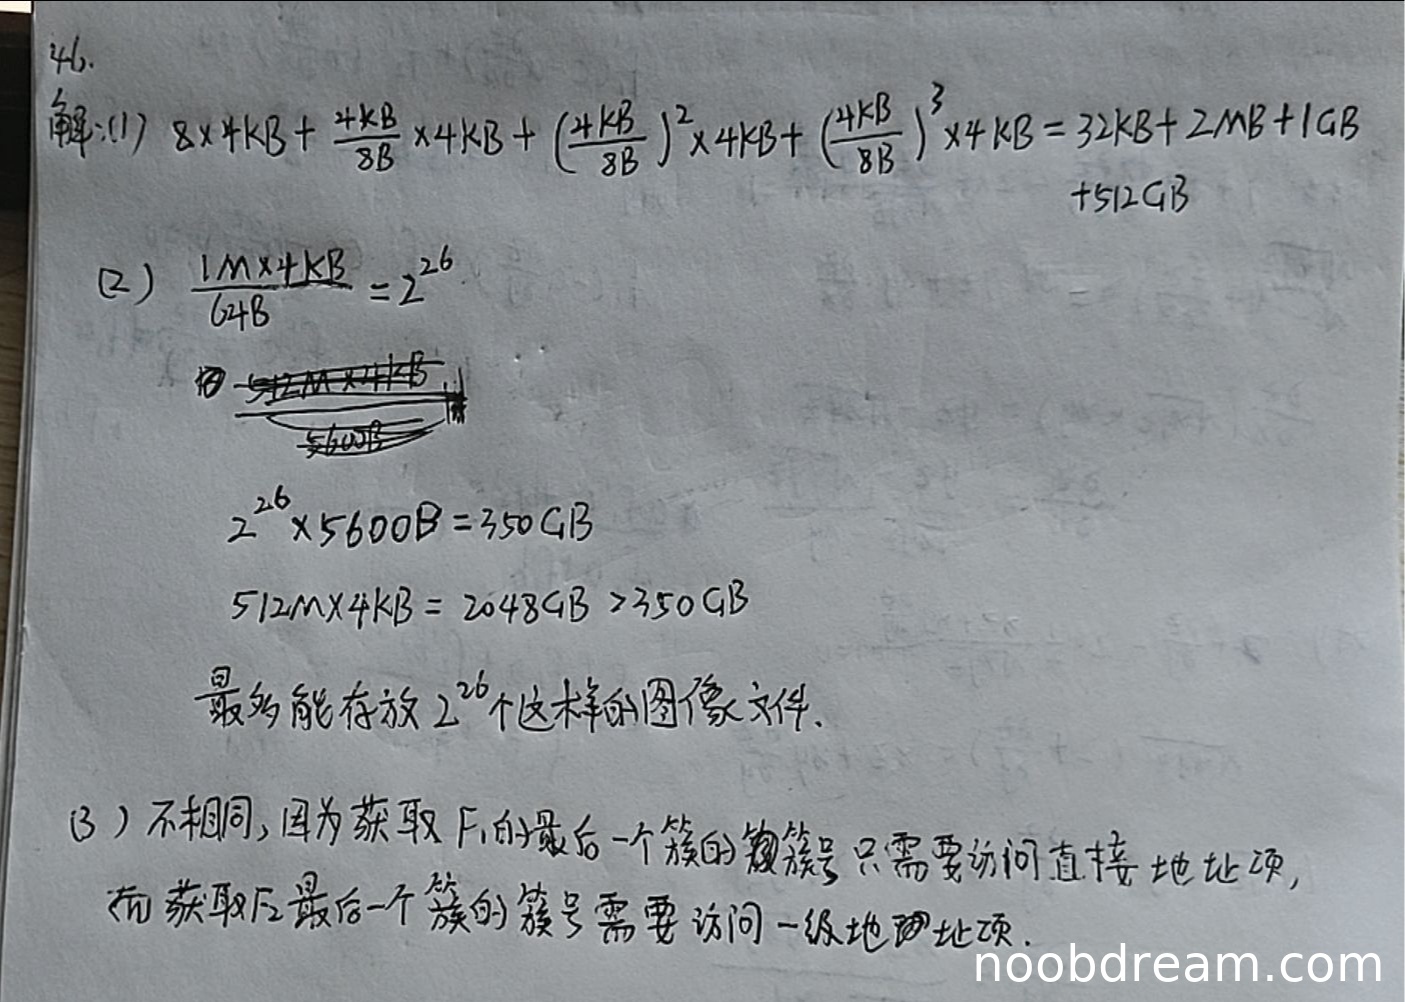 46.
解:(1) 8×4KB+4KB/8B×4KB+(4KB/8B)²×4KB+(4KB/8B)³×4KB=32KB+2MB+1GB
+512GB
(2) 1M×4KB/64B=2²⁶
512M×4KB
5600B
2²⁶×5600B=350GB
512M×4KB=2048GB>350GB
最多能存放2²⁶个这样的图像文件.
(3) 不相同,因为获取F₁的最后一个簇的簇号只需要访问直接地址项,
而获取F₂最后一个簇的簇号需要访问一级地址项.
noobdream.com